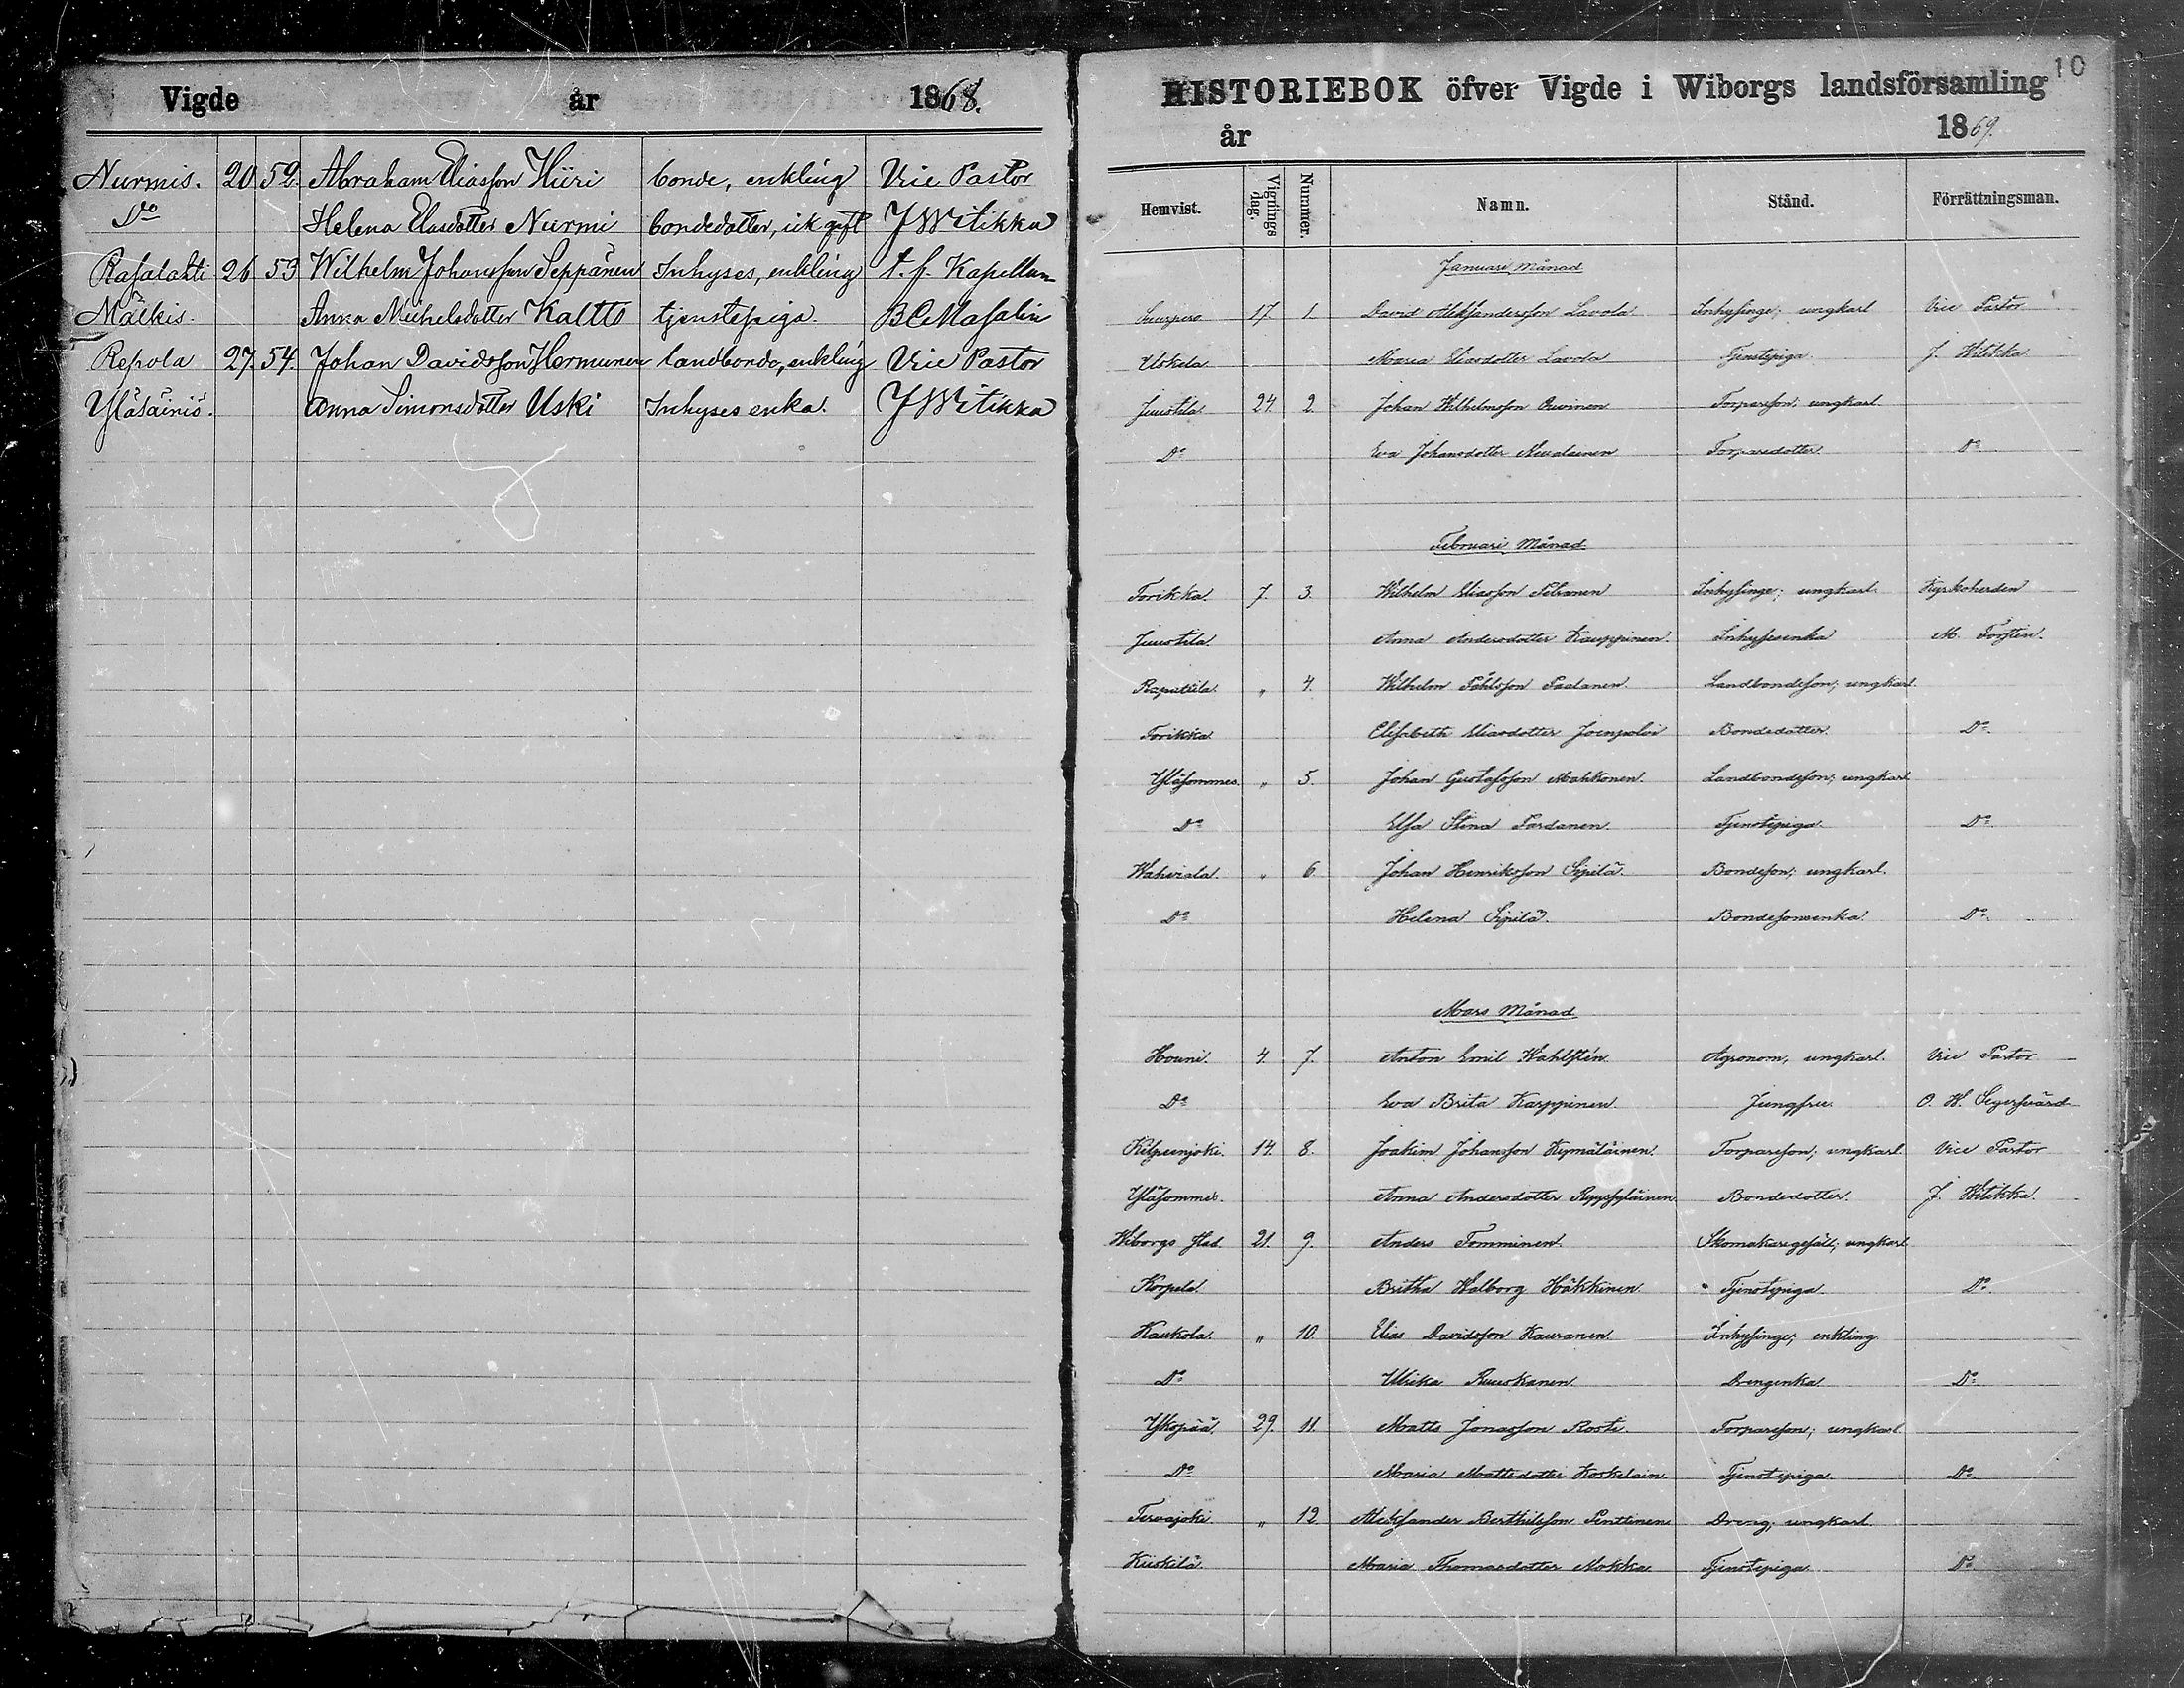 Vigde år 1868.
Nurmis. 20 52. Abraham Eliasson Hiiri bonde, enkling Vice Pastor
Do Helena Eliasdotter Nurmi bondedotter, ick gift J Witikka
Rasalahti 26 53 Wilhelm Johansson Seppänen Inhyses, enkling t. f. Kapellan
Mälkis. Anna Michelsdotter Kaltto tjenstepiga. B C Masalin
Repola 27. 54. Johan Davidsson Hermunen landbonde, enkling Vice Pastor
Yläsäiniö. Anna Simonsdotter Uski Inhyses enka. J Witikka
10
HISTORIEBOK öfver Vigde i Wiborgs landsförsamling
år 1869.
Hemvist. Vignings dag. Nummer. Namn. Stånd. Förrättningsman.
Januari Månad
Suurpero 17. 1. David Aleksandersson Lavola Inhysinge; ungkarl Vice Pastor
Uskela Maria Eliasdotter Lavola Tjenstepiga. J. Witikka
Juustila. 24. 2. Johan Wilhelmsson Orvinen Torpareson; ungkarl.
Do Eva Johansdotter Nevalainen Torparedotter. Do
Februari Månad
Torikka. 7. 3. Wilhelm Eliasson Silvonen Inhysinge; ungkarl. Kyrkoherden
Juustila. Anna Andersdotter Kauppinen. Inhysesenka M. Forstén.
Rapattila. " 4. Wilhelm Påhlsson Paalanen. Landbondeson; ungkarl.
Torikka. Elisabeth Eliasdotter Joenpolvi Bondedotter. Do
Yläsommee. " 5. Johan Gustafsson Mahkonen. Landbondeson; ungkarl
Do Ulja Stina Pardanen. Tjenstepiga. Do
Wahviala. " 6. Johan Henriksson Sipilä. Bondeson; ungkarl.
Do Helena Sipilä. Bondesonsenka. Do
Mars Månad
Houni. 4. 7. Anton Emil Wahlstén. Agronom, ungkarl. Vice Pastor
Do Eva Brita Karppinen. Jungfru. O. W. Segersvärd
Kilpeenjoki. 14. 8. Joakim Johansson Kymäläinen. Torpareson; ungkarl. Vice Pastor
Yläsommee. Anna Andersdotter Ryyssyläinen. Bondedotter. J. Witikka.
Wiborgs stad. 21. 9. Anders Tomminen. Skomakaregesäll; ungkarl
Korpela. Britha Walborg Häkkinen. Tjenstepiga. Do
Kaukola. " 10. Elias Davidsson Kauranen. Inhysinge; enkling.
Do Ulrika Ruuskanen. Drengenka. Do
Ykspää. 29. 11. Matts Jonasson Rosti. Torpareson; ungkarl.
Do Maria Mattsdotter Koskelain. Tjenstepiga. Do
Tervajoki. " 12. Aleksander Berthilsson Penttinen Dreng; ungkarl.
Kiiskilä. Maria Thomasdotter Mokka. Tjenstepiga. Do